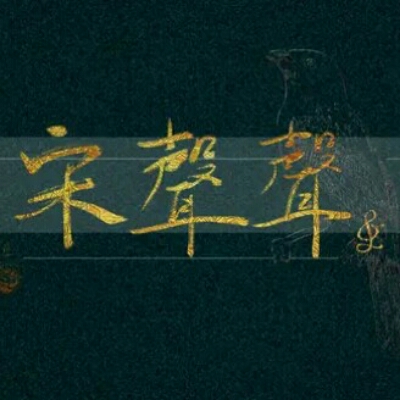 宋聲聲